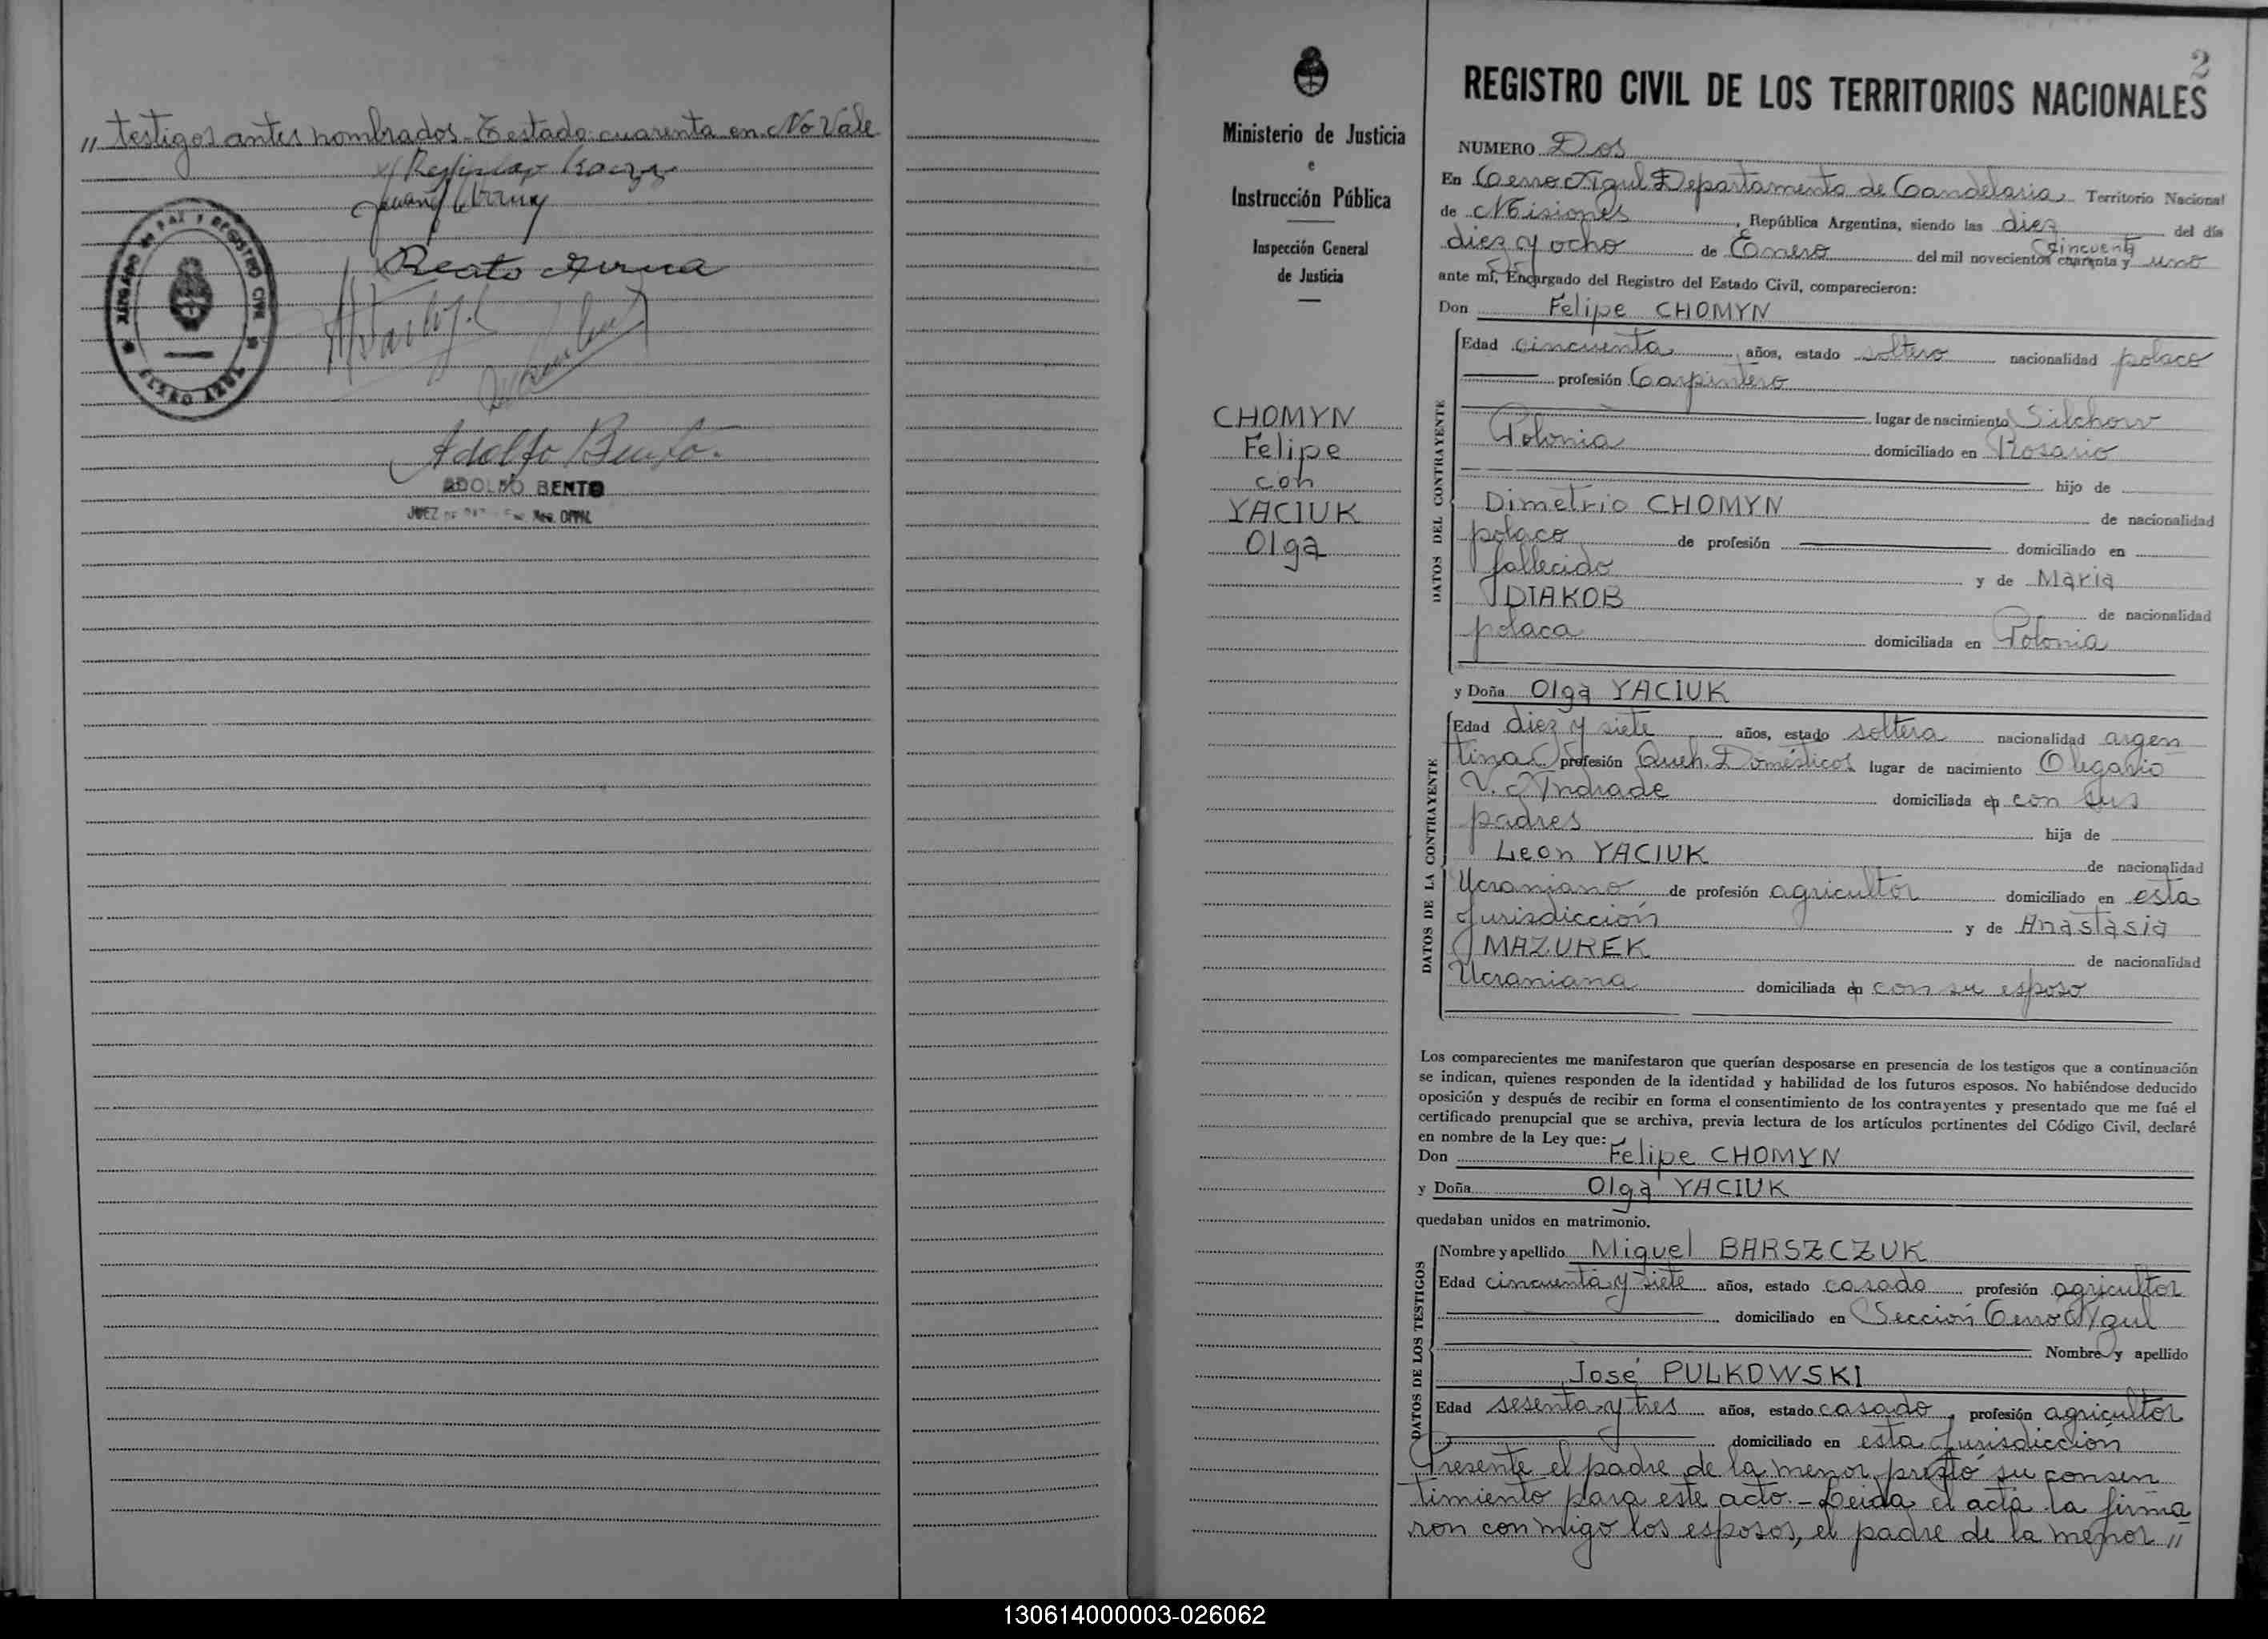 " testigos antes nombrados. Testado: cuarenta en No Vale
JUZGADO DE PAZ Y REGISTRO CIVIL
CERRO AZUL
Adolfo Bento.
ADOLFO BENTO
JUEZ DE PAZ
CIVIL
2
Ministerio de Justicia
e
Instrucción Pública
Inspección General
de Justicia
CHOMYN
Felipe
con
YACIUK
Olga
REGISTRO CIVIL DE LOS TERRITORIOS NACIONALES
NUMERO Dos
En Cerro Azul Departamento de Candelaria, Territorio Nacional
de Misiones, República Argentina, siendo las diez del día
diez y ocho de Enero del mil novecientos cuarenta y Cincuenta uno
ante mí, Encargado del Registro del Estado Civil, comparecieron:
Don Felipe CHOMYN
DATOS DEL CONTRAYENTE
Edad cincuenta años, estado soltero nacionalidad polaco
profesión Carpintero
lugar de nacimiento Silchow
Polonia domiciliado en Rosario
hijo de
Dimetrio CHOMYN de nacionalidad
polaco de profesión domiciliado en
fallecido y de Maria
DIAKOB de nacionalidad
polaca domiciliada en Polonia
y Doña Olga YACIUK
DATOS DE LA CONTRAYENTE
Edad diez y siete años, estado soltera nacionalidad argen
tina profesión Queh. Domésticos lugar de nacimiento Olegario
V. Andrade domiciliada en con sus
padres hija de
Leon YACIUK de nacionalidad
Ucraniano de profesión agricultor domiciliado en esta
Jurisdicción y de Anastasia
MAZUREK de nacionalidad
Ucraniana domiciliada en con su esposo
Los comparecientes me manifestaron que querían desposarse en presencia de los testigos que a continuación
se indican, quienes responden de la identidad y habilidad de los futuros esposos. No habiéndose deducido
oposición y después de recibir en forma el consentimiento de los contrayentes y presentado que me fué el
certificado prenupcial que se archiva, previa lectura de los artículos pertinentes del Código Civil, declaré
en nombre de la Ley que:
Don Felipe CHOMYN
y Doña Olga YACIUK
quedaban unidos en matrimonio.
DATOS DE LOS TESTIGOS
Nombre y apellido Miguel BARSZCZUK
Edad cincuenta y siete años, estado casado profesión agricultor
domiciliado en Sección Cerro Azul
Nombre y apellido
José PULKOWSKI
Edad sesenta y tres años, estado casado, profesión agricultor
domiciliado en esta Jurisdicción
Presente el padre de la menor prestó su consen
timiento para este acto.- Leida el acta la firma
ron conmigo los esposos, el padre de la menor "
130614000003-026062